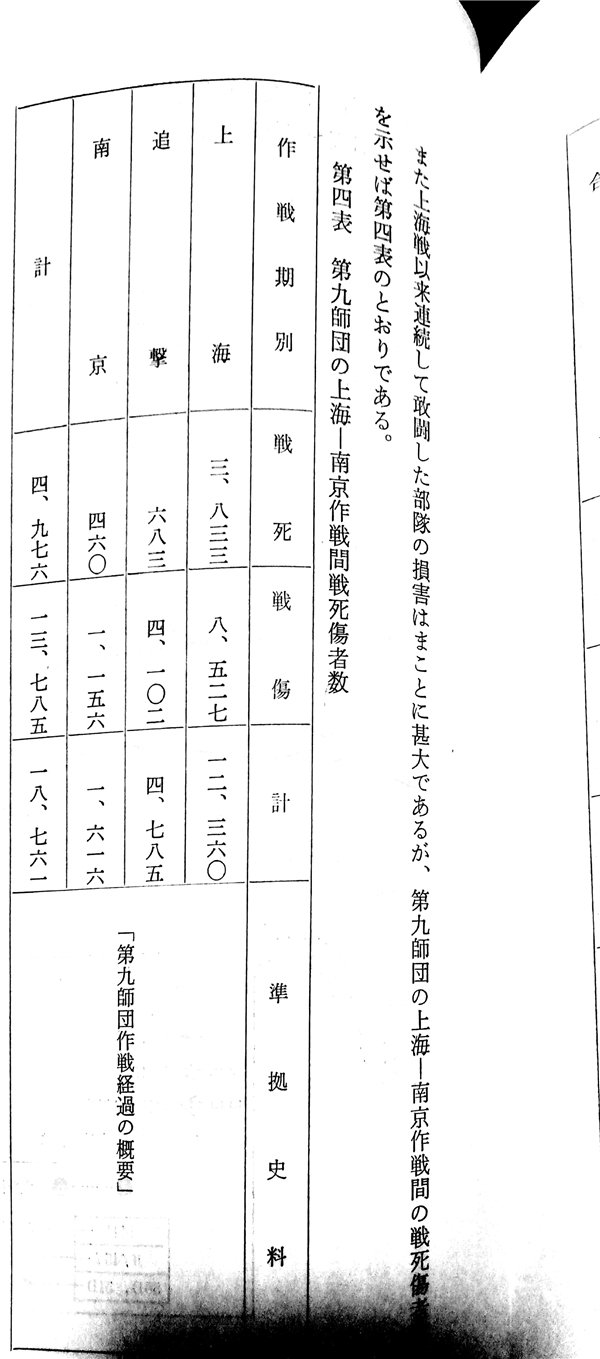 また上海戦以来連続して敢闘した部隊の損害はまことに甚大であるが、第九師団の上海―南京作戦間の戦死傷者
を示せば第四表のとおりである。
第四表　第九師団の上海―南京作戦間戦死傷者数
作戦期別　戦死　戦傷　計　準拠史料
上海　三、八三三　八、五二七　一二、三六〇
追撃　六八三　四、一〇二　四、七八五
南京　四六〇　一、一五六　一、六一六
計　四、九七六　一三、七八五　一八、七六一
「第九師団作戦経過の概要」